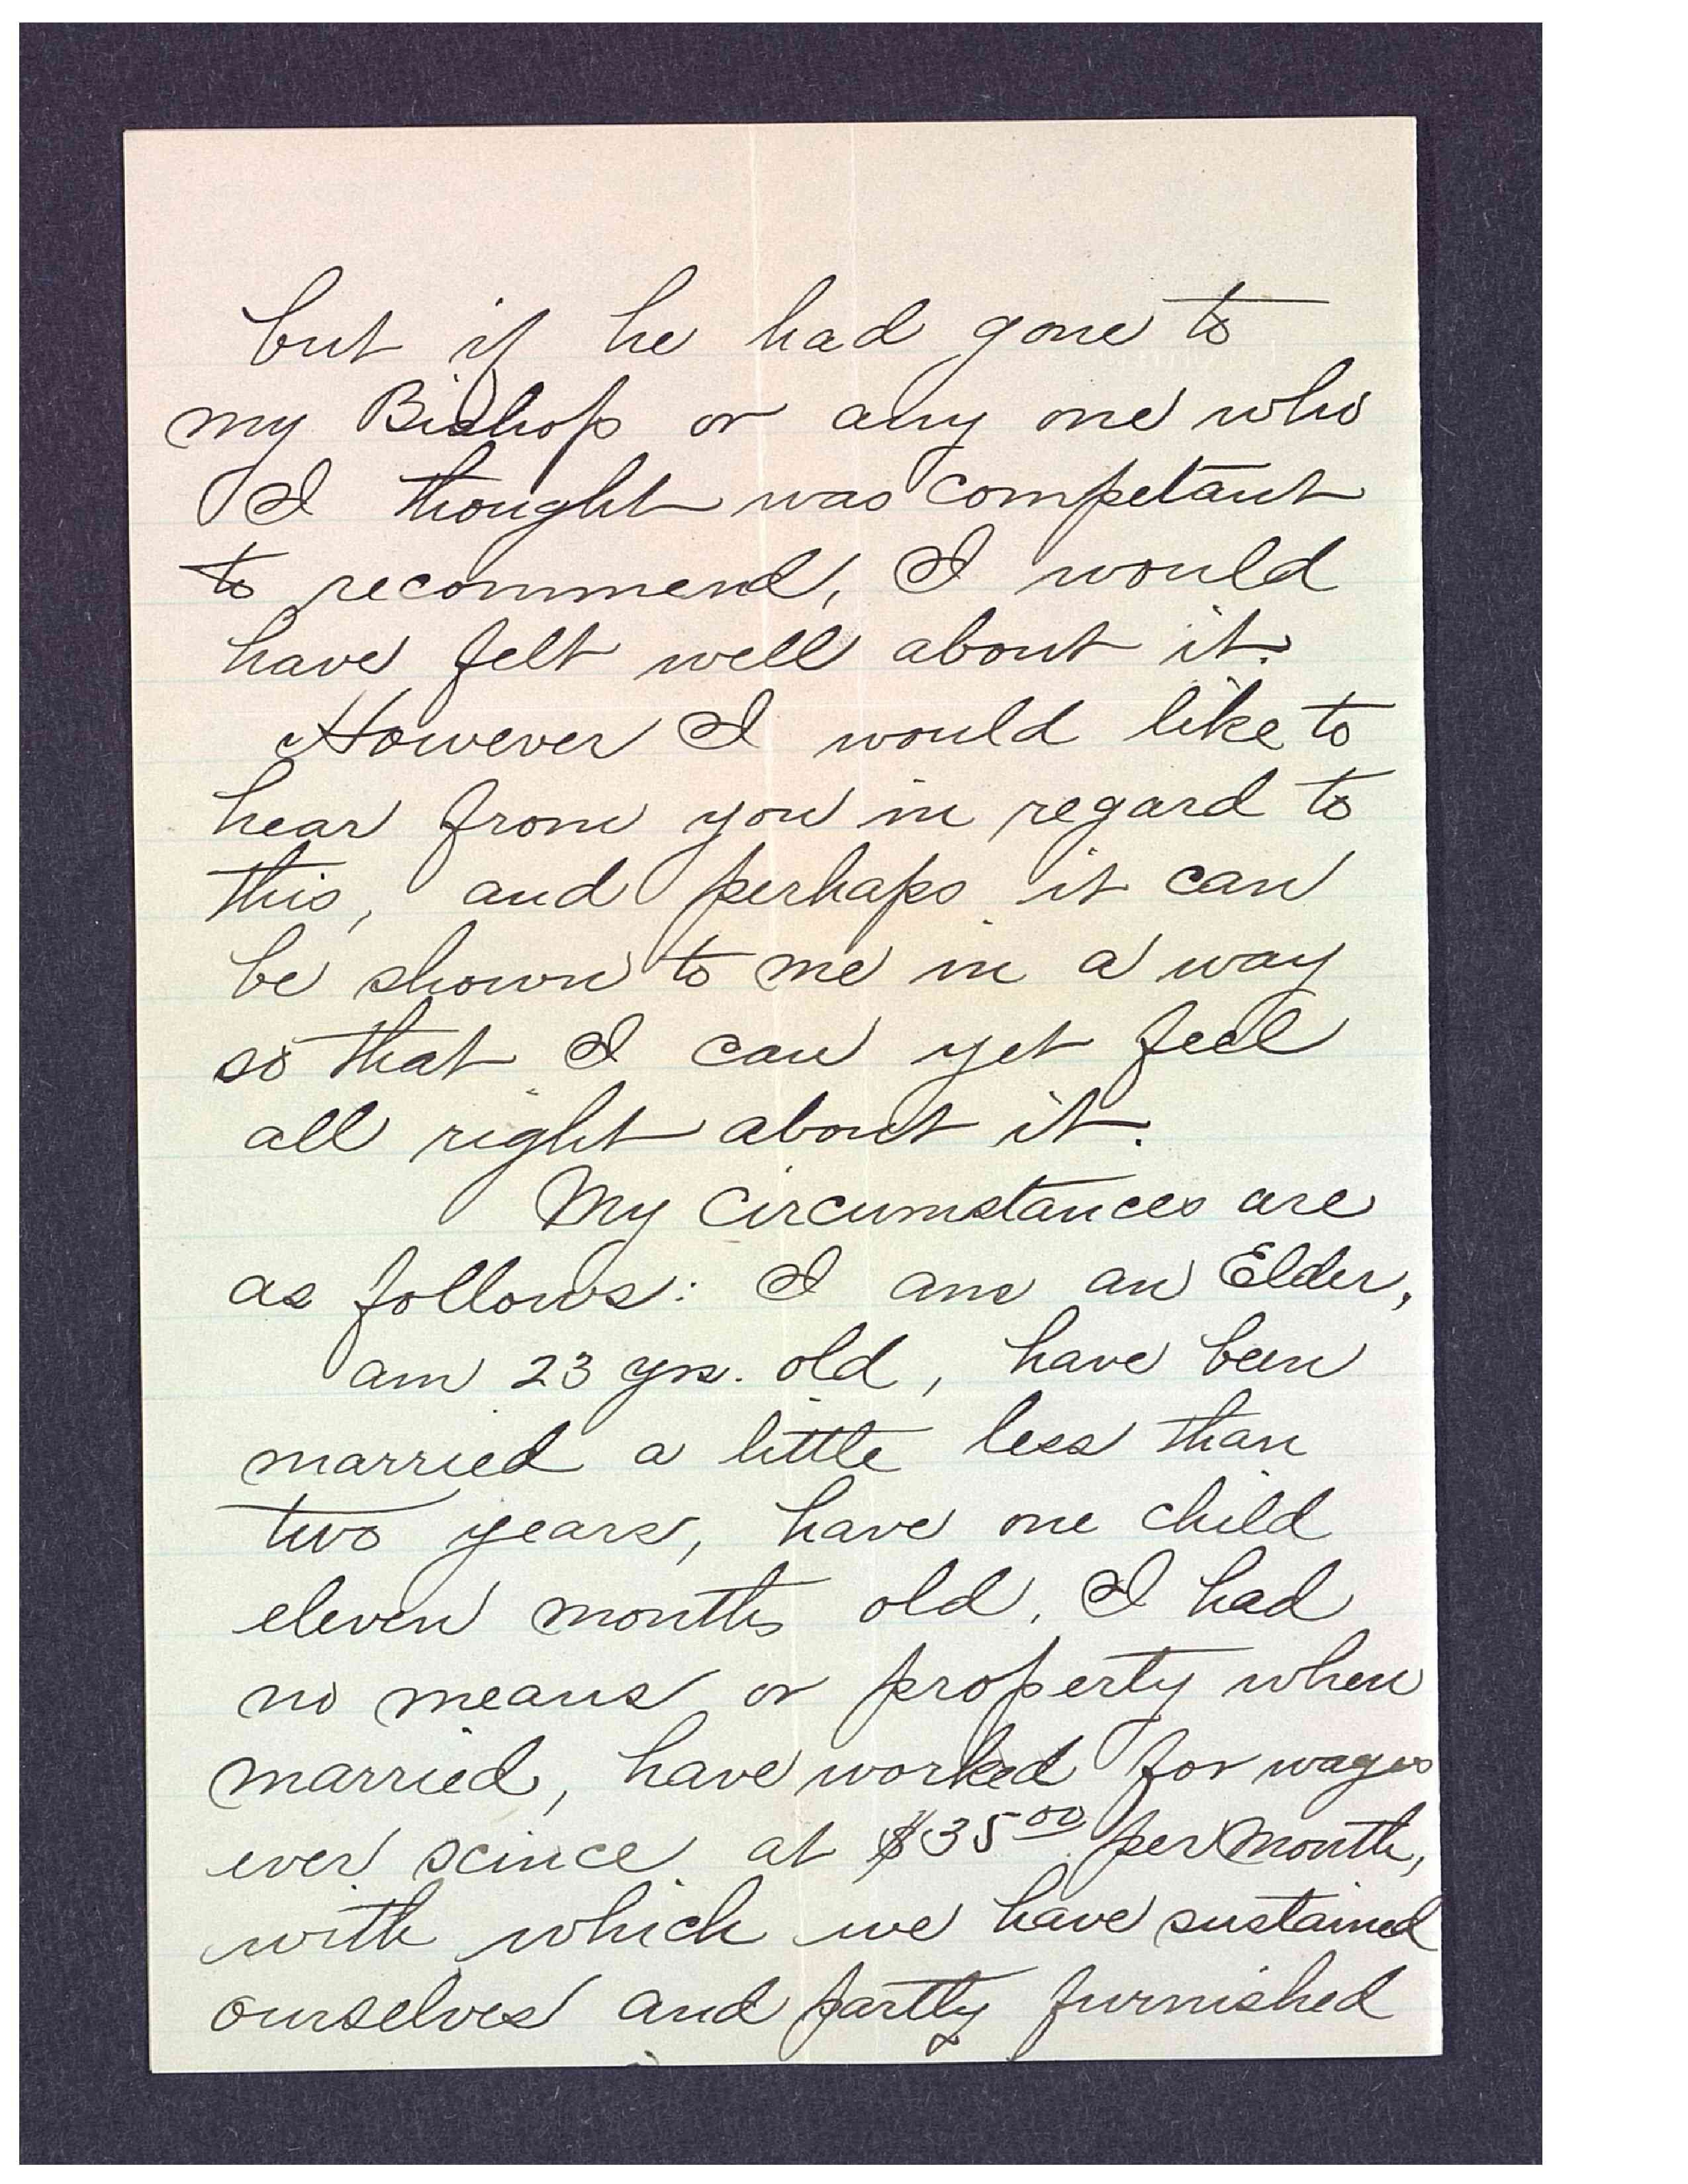 but if he had gone to
my Bishop or any one who
I thought was competant
to recommend, I would
have felt well about it.
However I would like to
hear from you in regard to
this, and perhaps it can
be shown to me in a way
so that I can yet feel
all right about it.
My circumstances are
as follows: I am an Elder,
am 23 yrs. old, have been
married a little less than
two years, have one child
eleven months old. I had
no means or property when
married, have worked for wages
ever scince at $35 00 per month,
with which we have sustained
ourselves and partly furnished